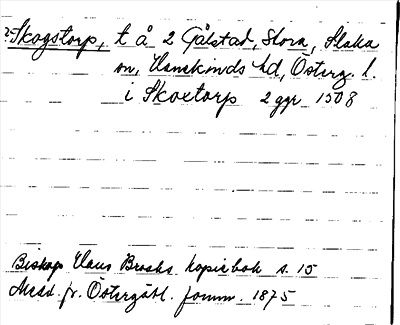 ?Skogstorp, t å 2 Gålstad, Stora, Slaka
sn, Hanekinds hd, Österg. l.
i Skoxtorp 2 ggr 1508
Biskop Hans Brasks kopiebok s. 15
Medd. fr. Östergötl. fornm. 1875